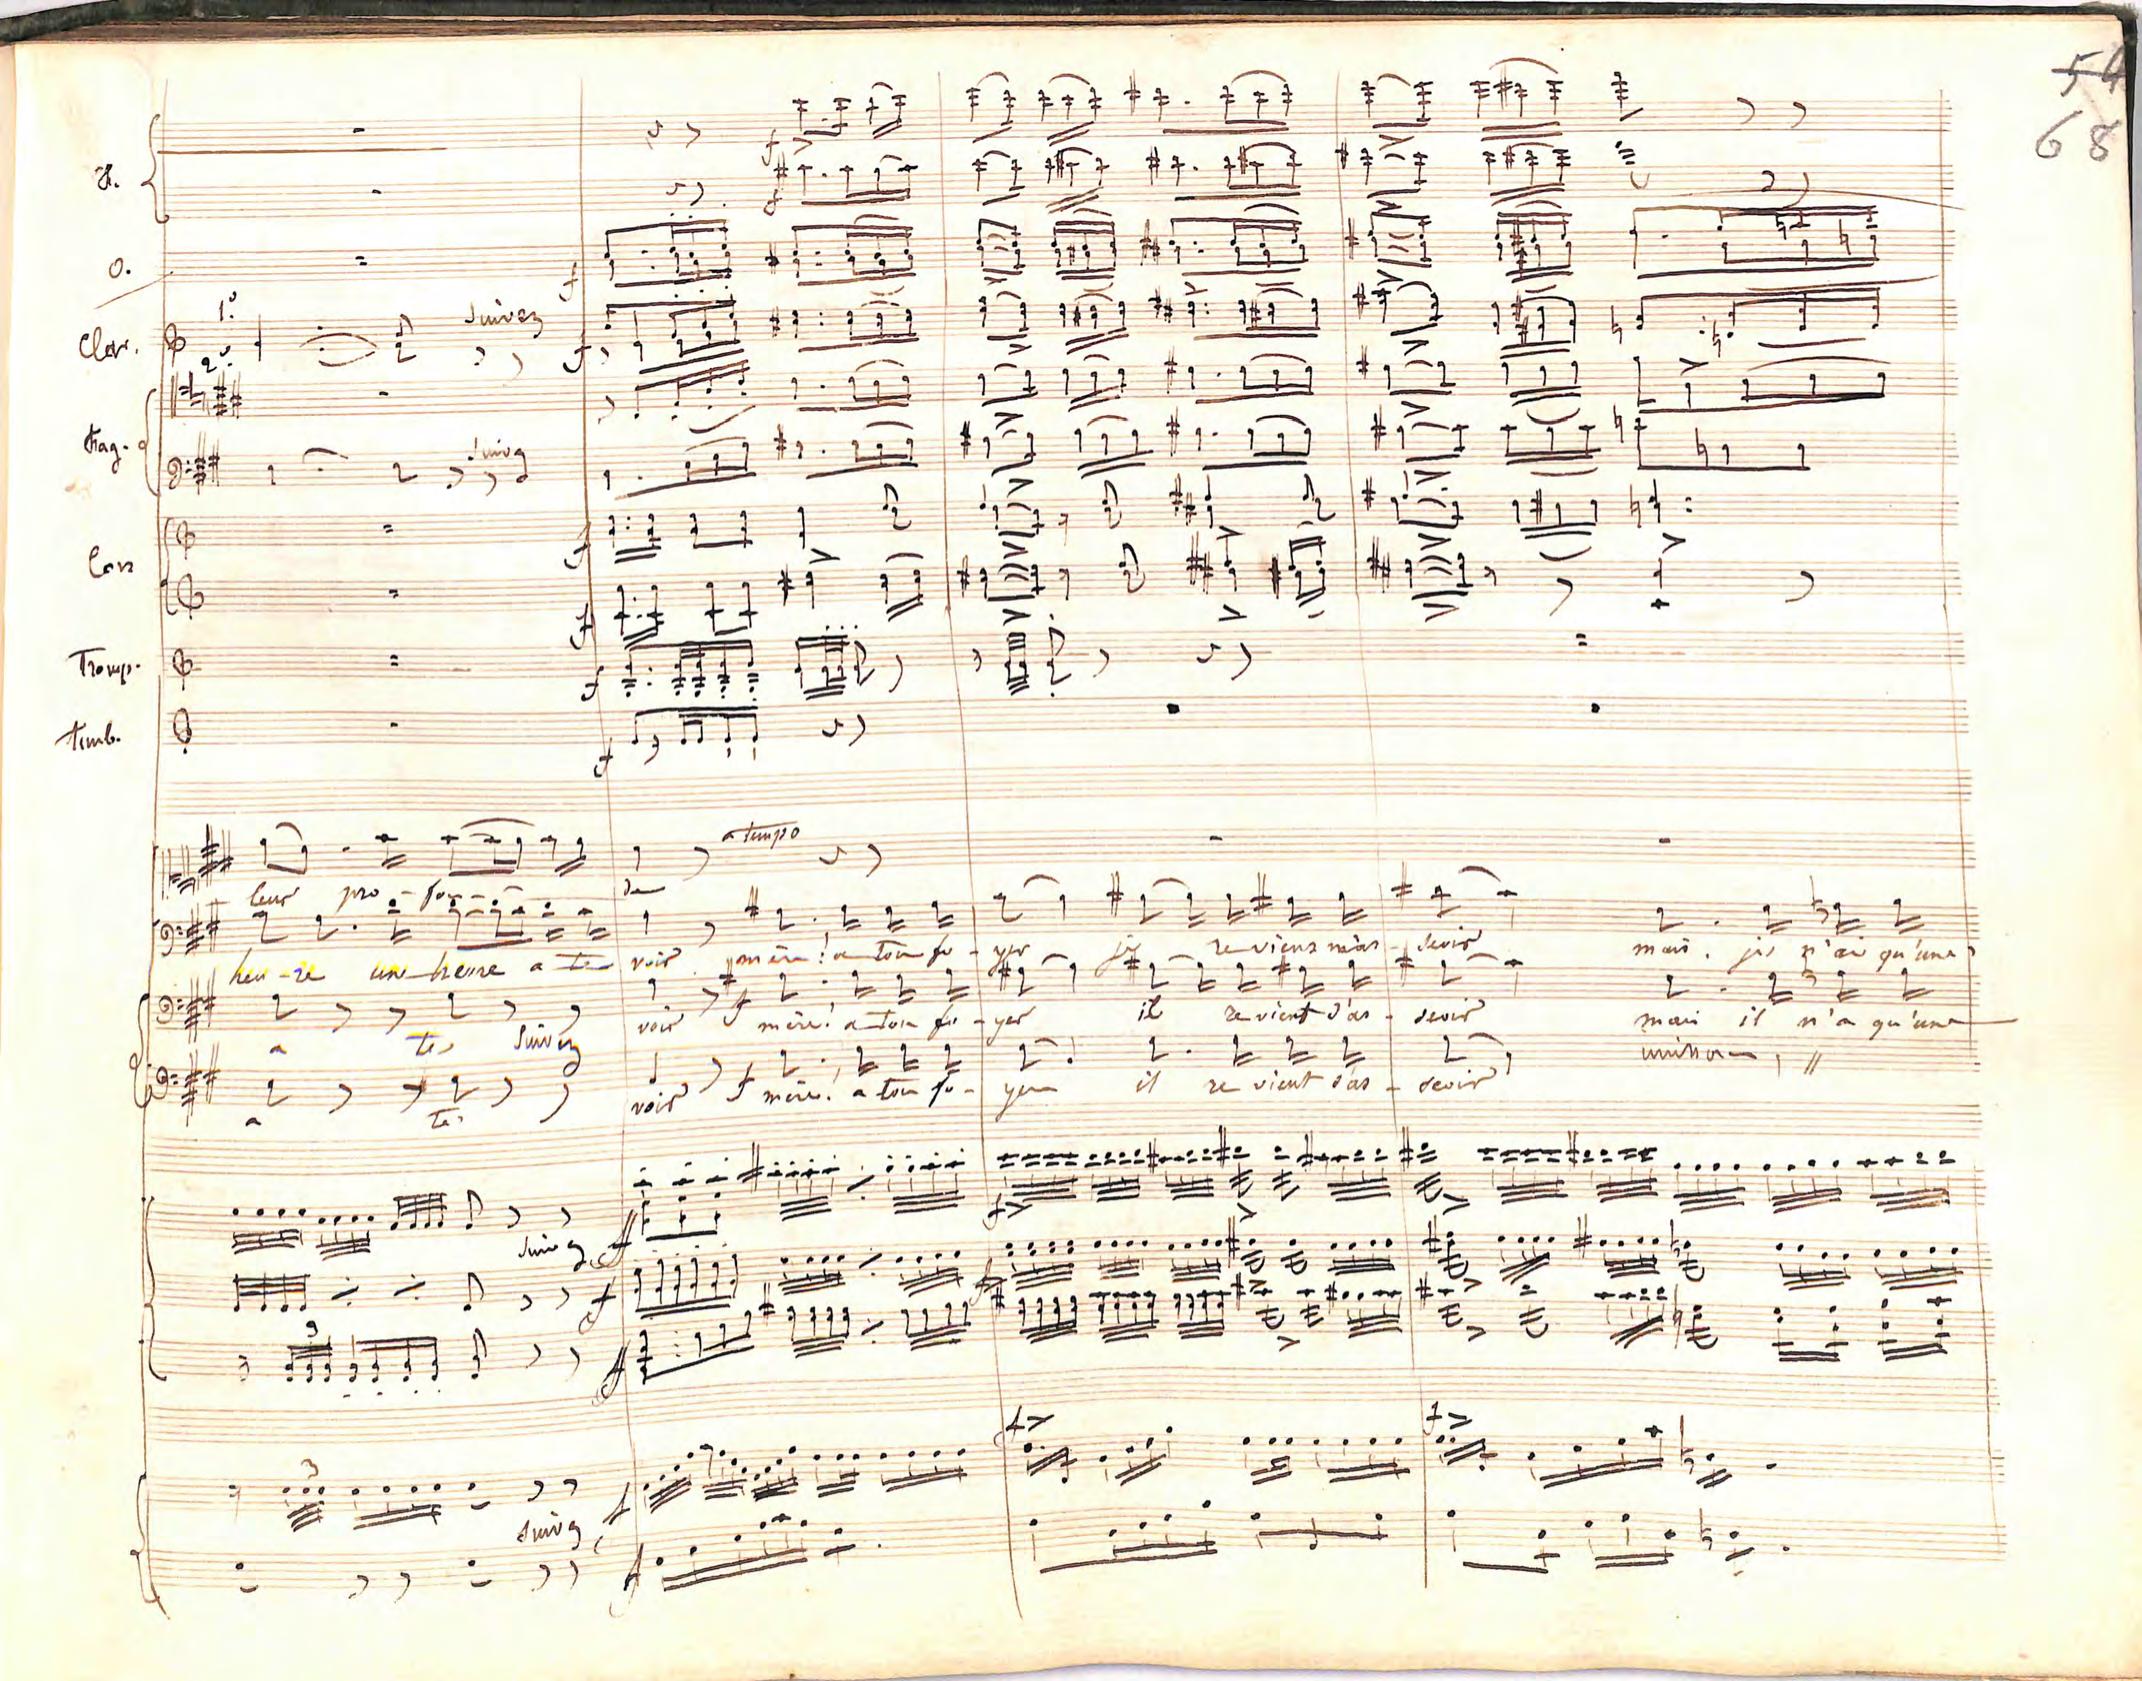 54
68
O.
1º
Suivez
Clar.
2º
Fag.
Suivez
f
Cors
f
f
Tromp.
f
Timb.
f
a tempo
leur pro - fon - de
heu - re une heure a te voir mère! a ton fo - yer je reviens m'as - seoir mais je n'ai qu'une
a te Suivez voir f mère! a ton fo - yer il revient s'as - seoir mais il n'a qu'une
a te voir f mère! a ton fo - yer il revient s'as - seoir unisson //
Suivez f
f
3
f
f
f
3
f
Suivez
f